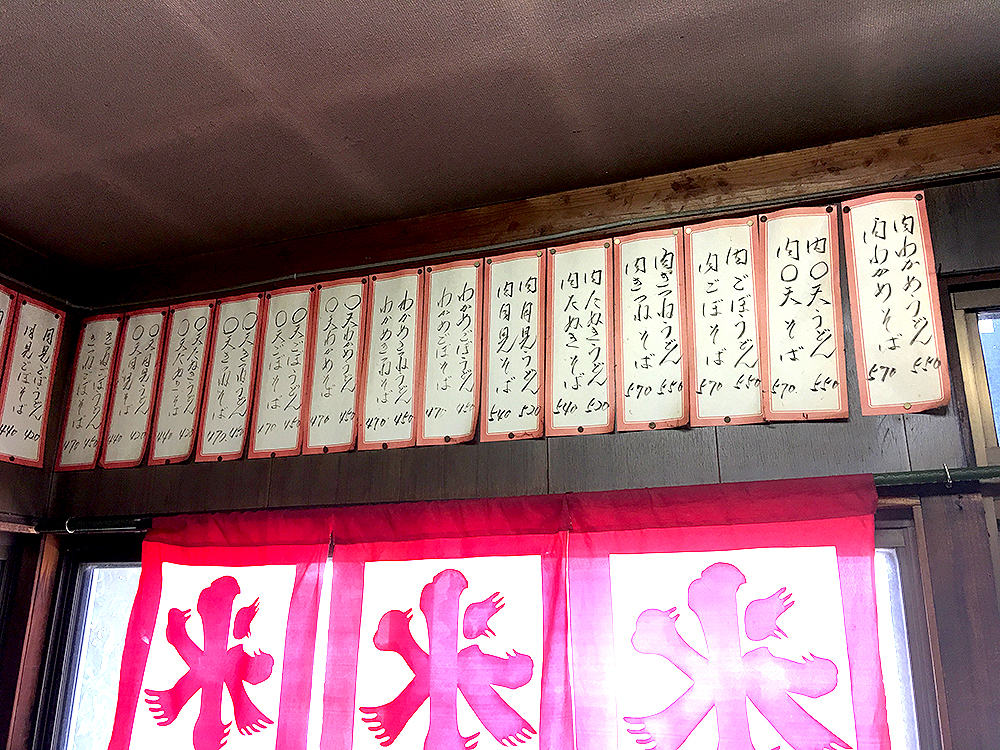 肉わかめうどん 550
肉わかめそば 570
肉〇天うどん 550
肉〇天そば 570
肉ごぼううどん 550
肉ごぼそば 570
肉きつねうどん 550
肉きつねそば 570
肉たぬきうどん 520
肉たぬきそば 540
肉月見うどん 520
肉月見そば 540
わかめごぼうどん 450
わかめごぼそば 470
わかめきつねうどん 450
わかめきつねそば 470
〇天わかめうどん 450
〇天わかめそば 470
〇天ごぼうどん 450
〇天ごぼそば 470
〇天きつねうどん 450
〇天きつねそば 470
〇天たぬきうどん 420
〇天たぬきそば 440
〇天月見うどん 420
〇天月見そば 440
きつねごぼうどん 450
きつねごぼそば 470
月見ごぼうどん 420
月見ごぼそば 440
氷
氷
氷